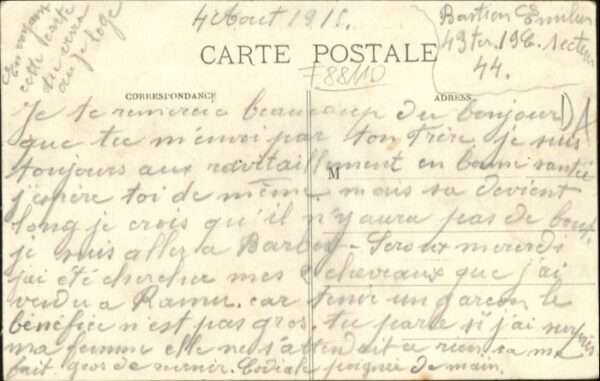 4 Aout 1915.
En voyant
cette carte
tu verra
ou je loge
Bastien Emilien
43 ter. 19e. secteur
44.
CARTE POSTALE
F88110
CORRESPONDANCE
ADRESSE
M
Je te remercie beaucoup du bonjour
que tu m'envoi par ton Frère. je suis
toujours aux ravitaillement en bonne santée
j'espère toi de même. mais sa devient
long je crois qu'il n'y aura pas de bout.
je suis allez a mercredi
j'ai été chercher mes 2 chevaux que j'ai
vendu a car tenir un garçon le
bénéfice n'est pas gros. tu parle si j'ai surpris
ma femme elle ne s'attendait a rien sa ma
fait gros de venir. Cordiale poignée de main.